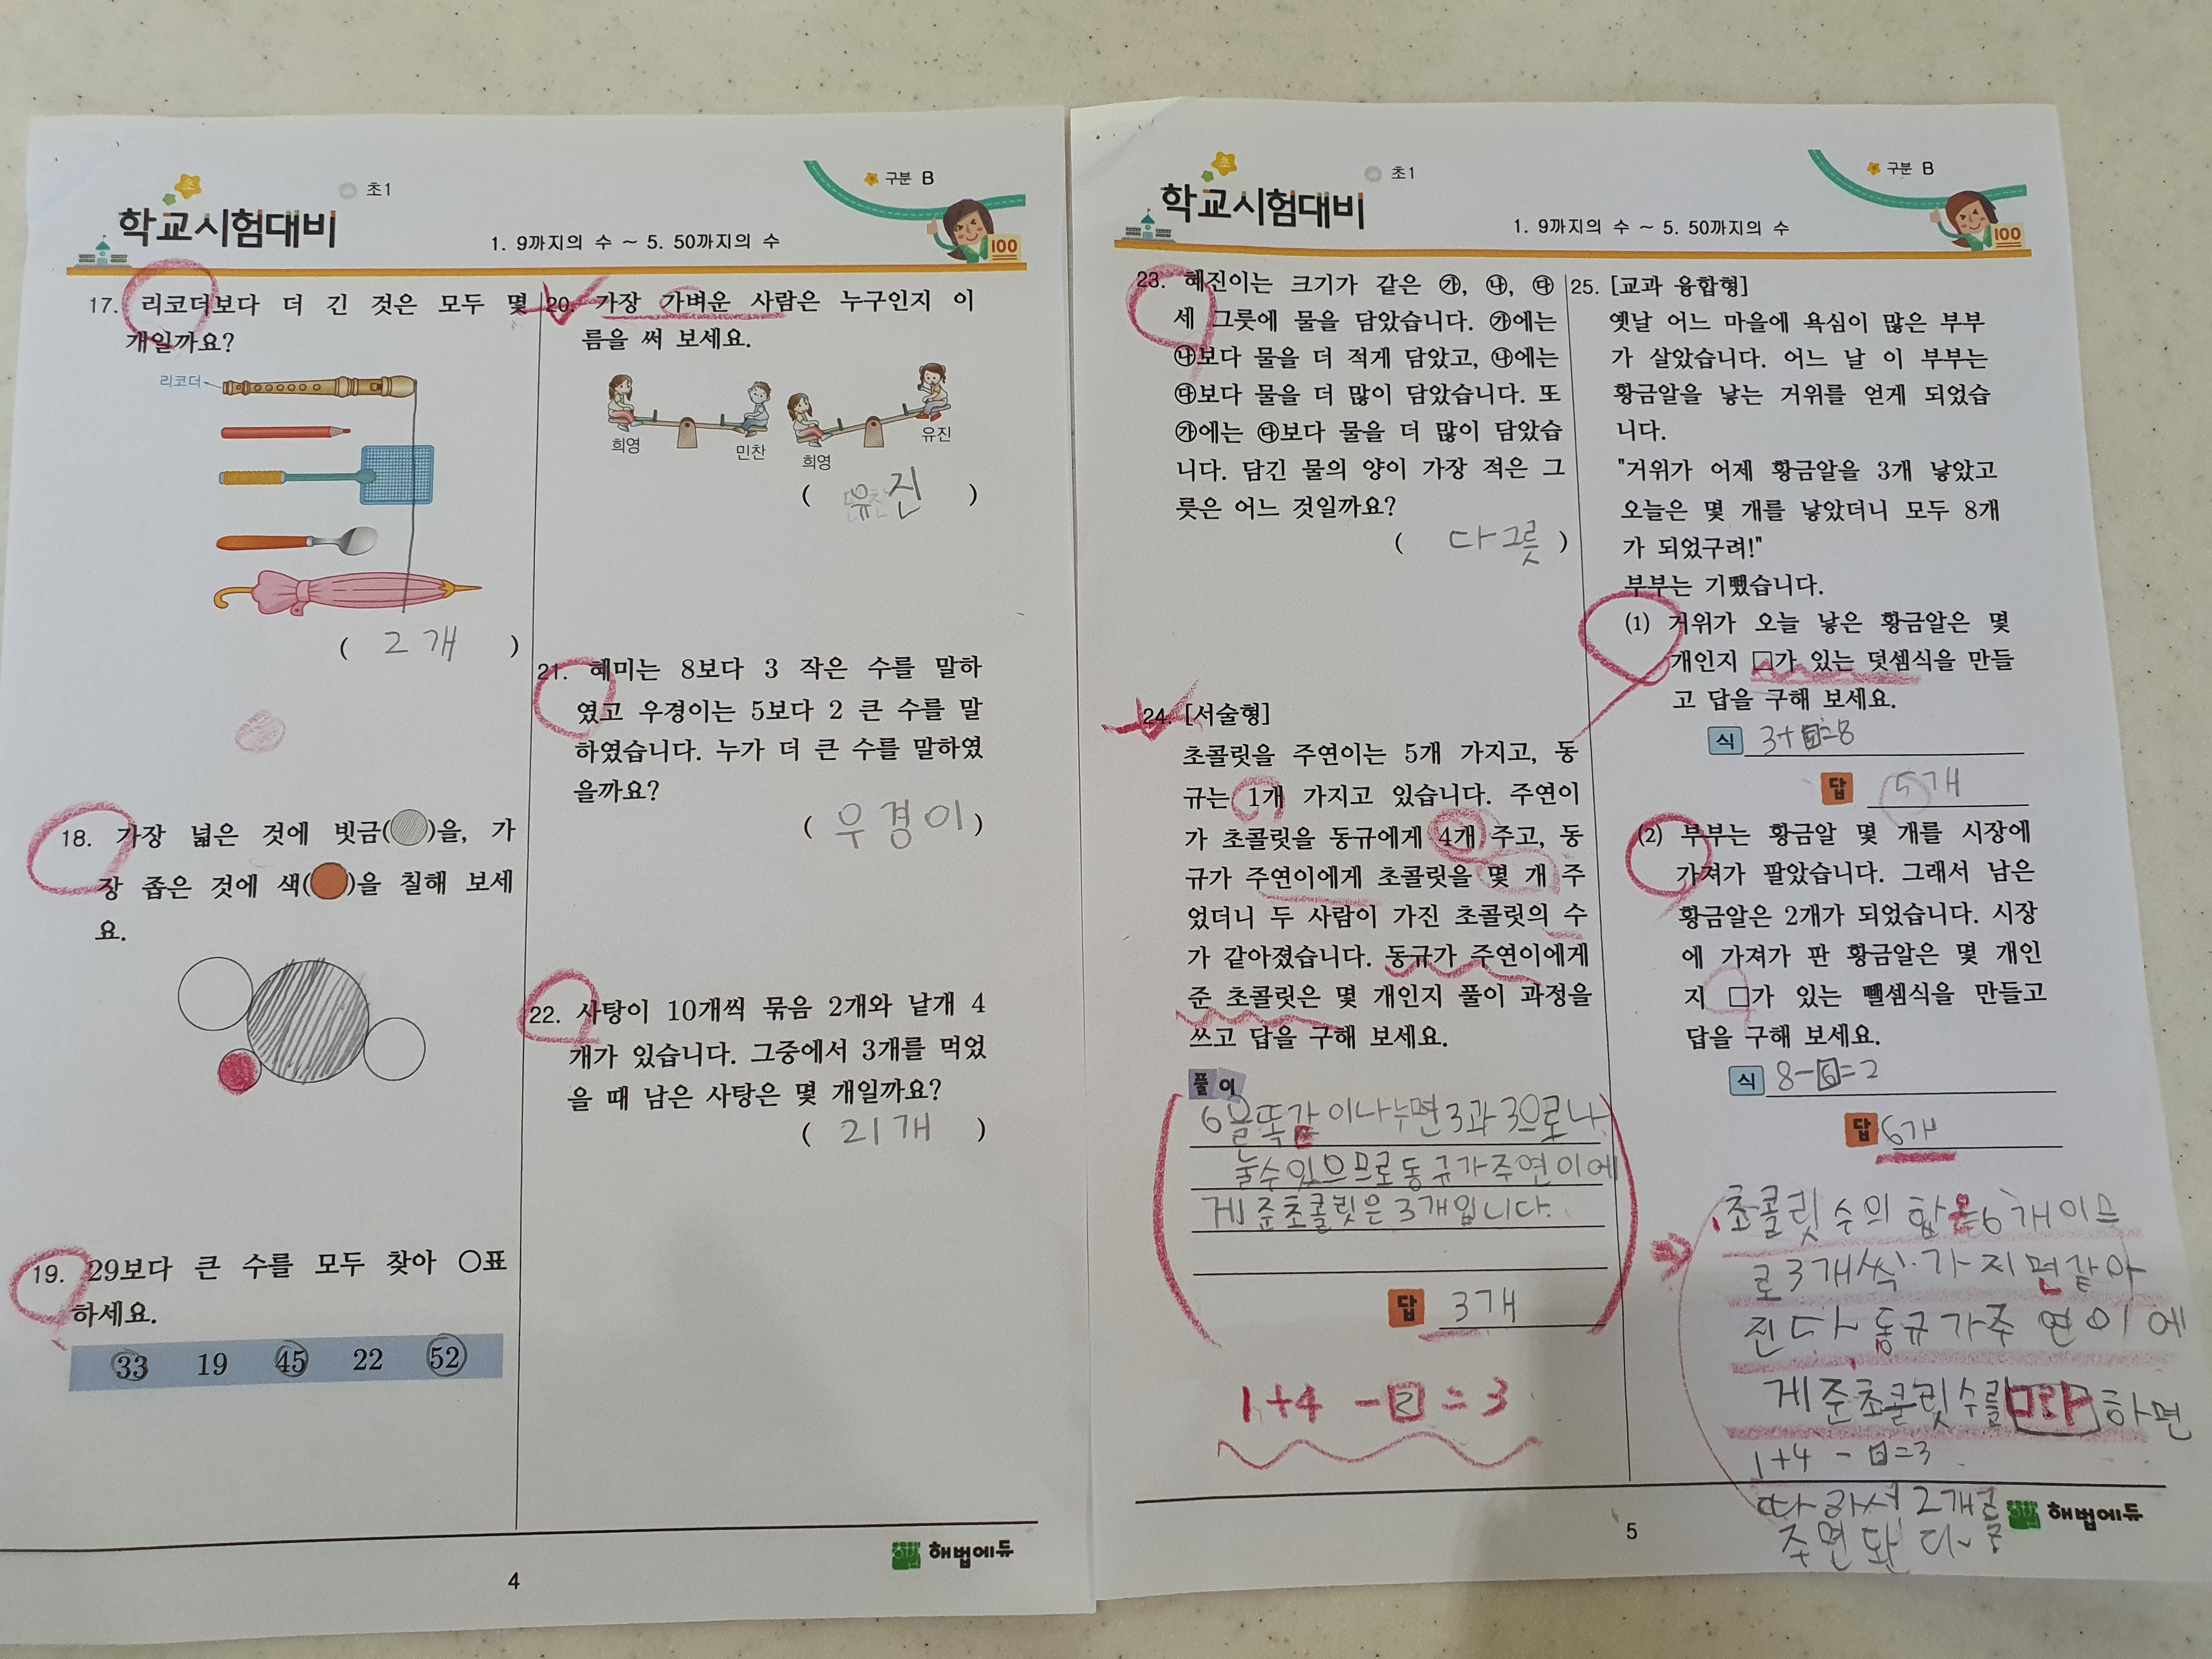 초
학교시험대비
초1
구분 B
1. 9까지의 수 ~ 5. 50까지의 수
100
17. 리코더보다 더 긴 것은 모두 몇
개일까요?
리코더
( 2개 )
18. 가장 넓은 것에 빗금( )을, 가
장 좁은 것에 색( )을 칠해 보세
요.
19. 29보다 큰 수를 모두 찾아 ○표
하세요.
33 19 45 22 52
20. 가장 가벼운 사람은 누구인지 이
름을 써 보세요.
희영 민찬 희영 유진
( 유진 )
21. 혜미는 8보다 3 작은 수를 말하
였고 우경이는 5보다 2 큰 수를 말
하였습니다. 누가 더 큰 수를 말하였
을까요?
( 우경이 )
22. 사탕이 10개씩 묶음 2개와 낱개 4
개가 있습니다. 그중에서 3개를 먹었
을 때 남은 사탕은 몇 개일까요?
( 21개 )
해법에듀
4
초
학교시험대비
초1
구분 B
1. 9까지의 수 ~ 5. 50까지의 수
100
23. 혜진이는 크기가 같은 ㉮, ㉯, ㉰
세 그릇에 물을 담았습니다. ㉮에는
㉯보다 물을 더 적게 담았고, ㉯에는
㉰보다 물을 더 많이 담았습니다. 또
㉮에는 ㉰보다 물을 더 많이 담았습
니다. 담긴 물의 양이 가장 적은 그
릇은 어느 것일까요?
( 다그릇 )
24. [서술형]
초콜릿을 주연이는 5개 가지고, 동
규는 1개 가지고 있습니다. 주연이
가 초콜릿을 동규에게 4개 주고, 동
규가 주연이에게 초콜릿을 몇 개 주
었더니 두 사람이 가진 초콜릿의 수
가 같아졌습니다. 동규가 주연이에게
준 초콜릿은 몇 개인지 풀이 과정을
쓰고 답을 구해 보세요.
풀이
6을똑같이나누면3과3으로나
눌수있으므로동규가주연이에
게준초콜릿은3개입니다.
답 3개
1+4 - 2 = 3
25. [교과 융합형]
옛날 어느 마을에 욕심이 많은 부부
가 살았습니다. 어느 날 이 부부는
황금알을 낳는 거위를 얻게 되었습
니다.
"거위가 어제 황금알을 3개 낳았고
오늘은 몇 개를 낳았더니 모두 8개
가 되었구려!"
부부는 기뻤습니다.
(1) 거위가 오늘 낳은 황금알은 몇
개인지 □가 있는 덧셈식을 만들
고 답을 구해 보세요.
식 3+5=8
답 5개
(2) 부부는 황금알 몇 개를 시장에
가져가 팔았습니다. 그래서 남은
황금알은 2개가 되었습니다. 시장
에 가져가 판 황금알은 몇 개인
지 □가 있는 뺄셈식을 만들고
답을 구해 보세요.
식 8-6=2
답 6개
초콜릿수의 합은6개이므
로3개씩 가지면같아
진다 동규가주연이에
게준초콜릿수를 하면
1+4 - □=3
따라서 2개를
주면된다.
해법에듀
5